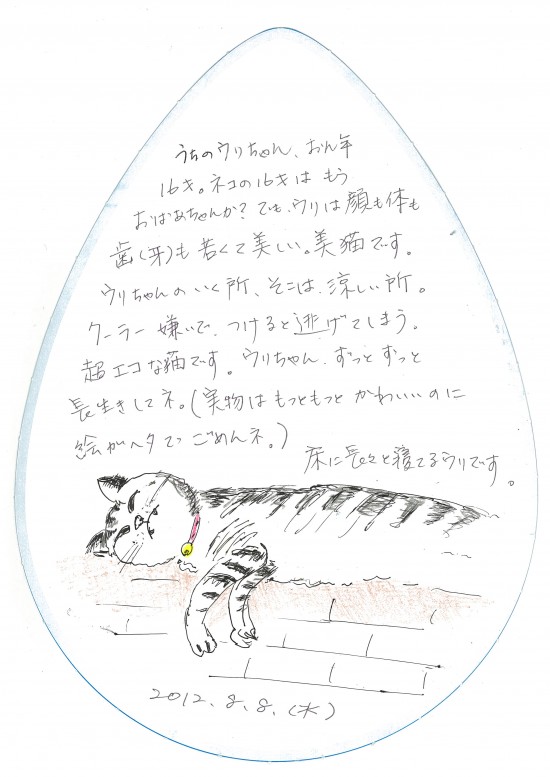 うちのウリちゃん、おん年
16才。ネコの16才は もう
おばあちゃんか？でも、ウリは顔も体も
歯(牙)も若くて美しい。美猫です。
ウリちゃんのいく所、そこは、涼しい所。
クーラー嫌いで、つけると逃げてしまう。
超エコな猫です。ウリちゃん、ずっとずっと
長生きしてネ。(実物はもっともっと かわいいのに
絵がヘタでごめんネ。)
床に長々と寝てるウリです。
2012.8.8.(水)